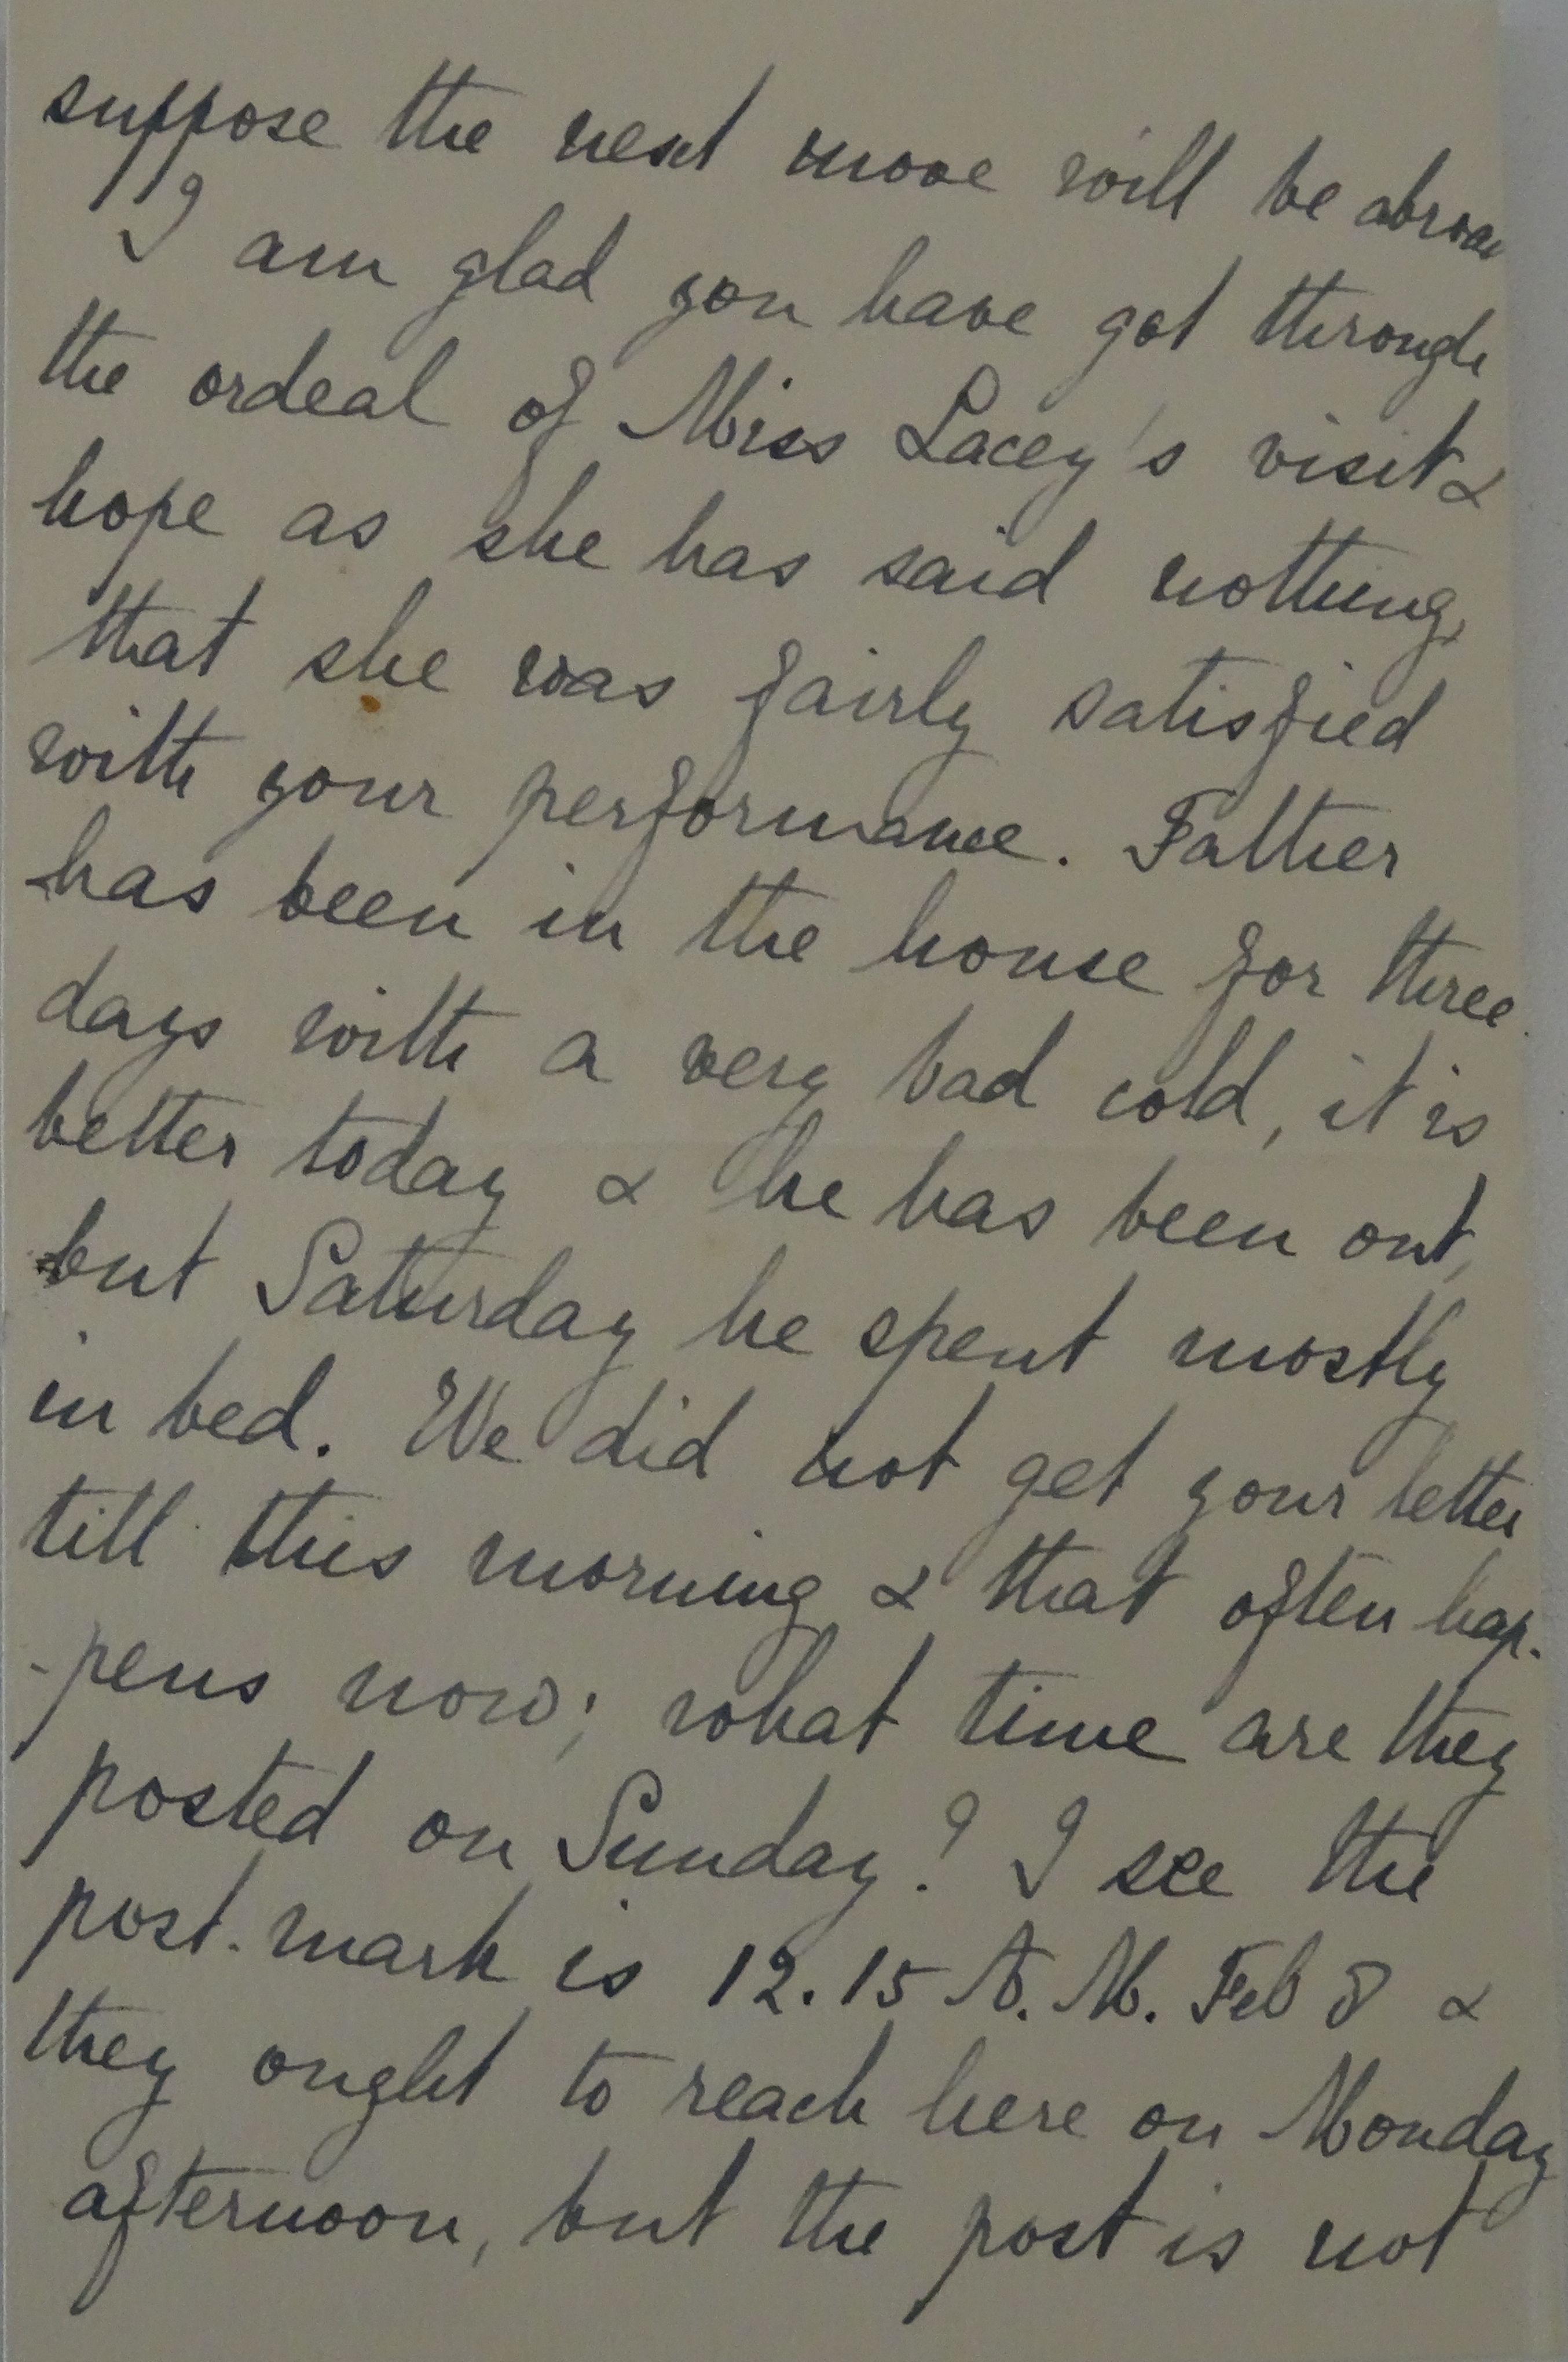 suppose the next move will be abroa
I am glad you have got through
the ordeal of Miss Lacey's visit &
hope as she has said nothing,
that she was fairly satisfied
with your performance. Father
has been in the house for three
days with a very bad cold, it is
better today & he has been out,
but Saturday he spent mostly
in bed. We did not get your letter
till this morning & that often hap-
-pens now; what time are they
posted on Sunday? I see the
post-mark is 12.15 A.M. Feb 8 &
they ought to reach here on Monday
afternoon, but the post is not